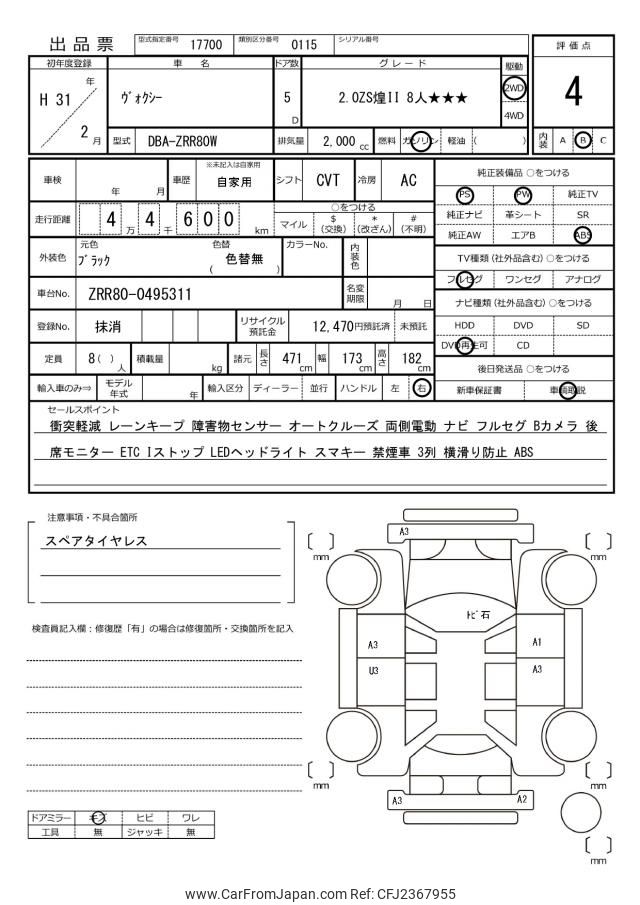 出品票 型式指定番号 17700 類別区分番号 0115 シリアル番号
評価点
初年度登録 車名 ドア数 グレード 駆動
H 31 年 ヴォクシー 5 D 2.0ZS煌II 8人★★★ 2WD
4
4WD
2 月 型式 DBA-ZRR80W 排気量 2,000 cc 燃料 ガソリン 軽油 ( )
内装 A B C
車検 年 月 車歴 ※未記入は自家用 自家用 シフト CVT 冷房 AC
純正装備品 ○をつける
PS PW 純正TV
走行距離 4 万 4 千 6 0 0 km ○をつける
マイル $ (交換) * (改ざん) # (不明)
純正ナビ 革シート SR
純正AW エアB ABS
外装色 元色 ブラック 色替 ( 色替無 ) カラーNo. 内装色
TV種類 (社外品含む) ○をつける
フルセグ ワンセグ アナログ
車台No. ZRR80-0495311 名変期限 月 日
ナビ種類 (社外品含む) ○をつける
登録No. 抹消 リサイクル預託金 12,470円預託済 未預託
HDD DVD SD
DVD再生可 CD
定員 8( ) 人 積載量 kg 諸元 長さ 471 cm 幅 173 cm 高さ 182 cm
後日発送品 ○をつける
輸入車のみ⇒ モデル年式 年 輸入区分 ディーラー 並行 ハンドル 左 右
新車保証書 車輌取説
セールスポイント
衝突軽減 レーンキープ 障害物センサー オートクルーズ 両側電動 ナビ フルセグ Bカメラ 後
席モニター ETC Iストップ LEDヘッドライト スマキー 禁煙車 3列 横滑り防止 ABS
注意事項・不具合箇所
スペアタイヤレス
検査員記入欄:修復歴「有」の場合は修復箇所・交換箇所を記入
A3
mm
mm
トビ石
A3
A1
U3
A3
mm
mm
A3
A2
mm
ドアミラー キズ ヒビ ワレ
工具 無 ジャッキ 無
www.CarFromJapan.com Ref: CFJ2367955